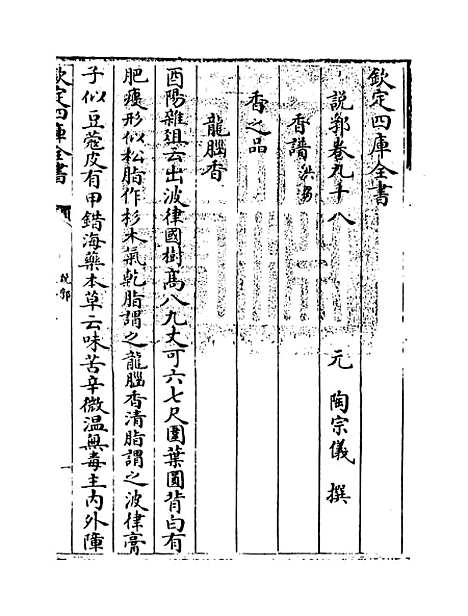 欽定四庫全書
說郛卷九十八
元 陶宗儀 撰
香譜 洪芻
香之品
龍腦香
酉陽雜俎云出波律國樹髙八九丈可六七尺圍葉圓背白有
肥瘦形似松脂作杉木氣乾脂謂之龍腦香清脂謂之波律膏
子似豆蔻皮有甲錯海藥本草云味苦辛微温無毒主内外障
欽定四庫全書
說郛
一